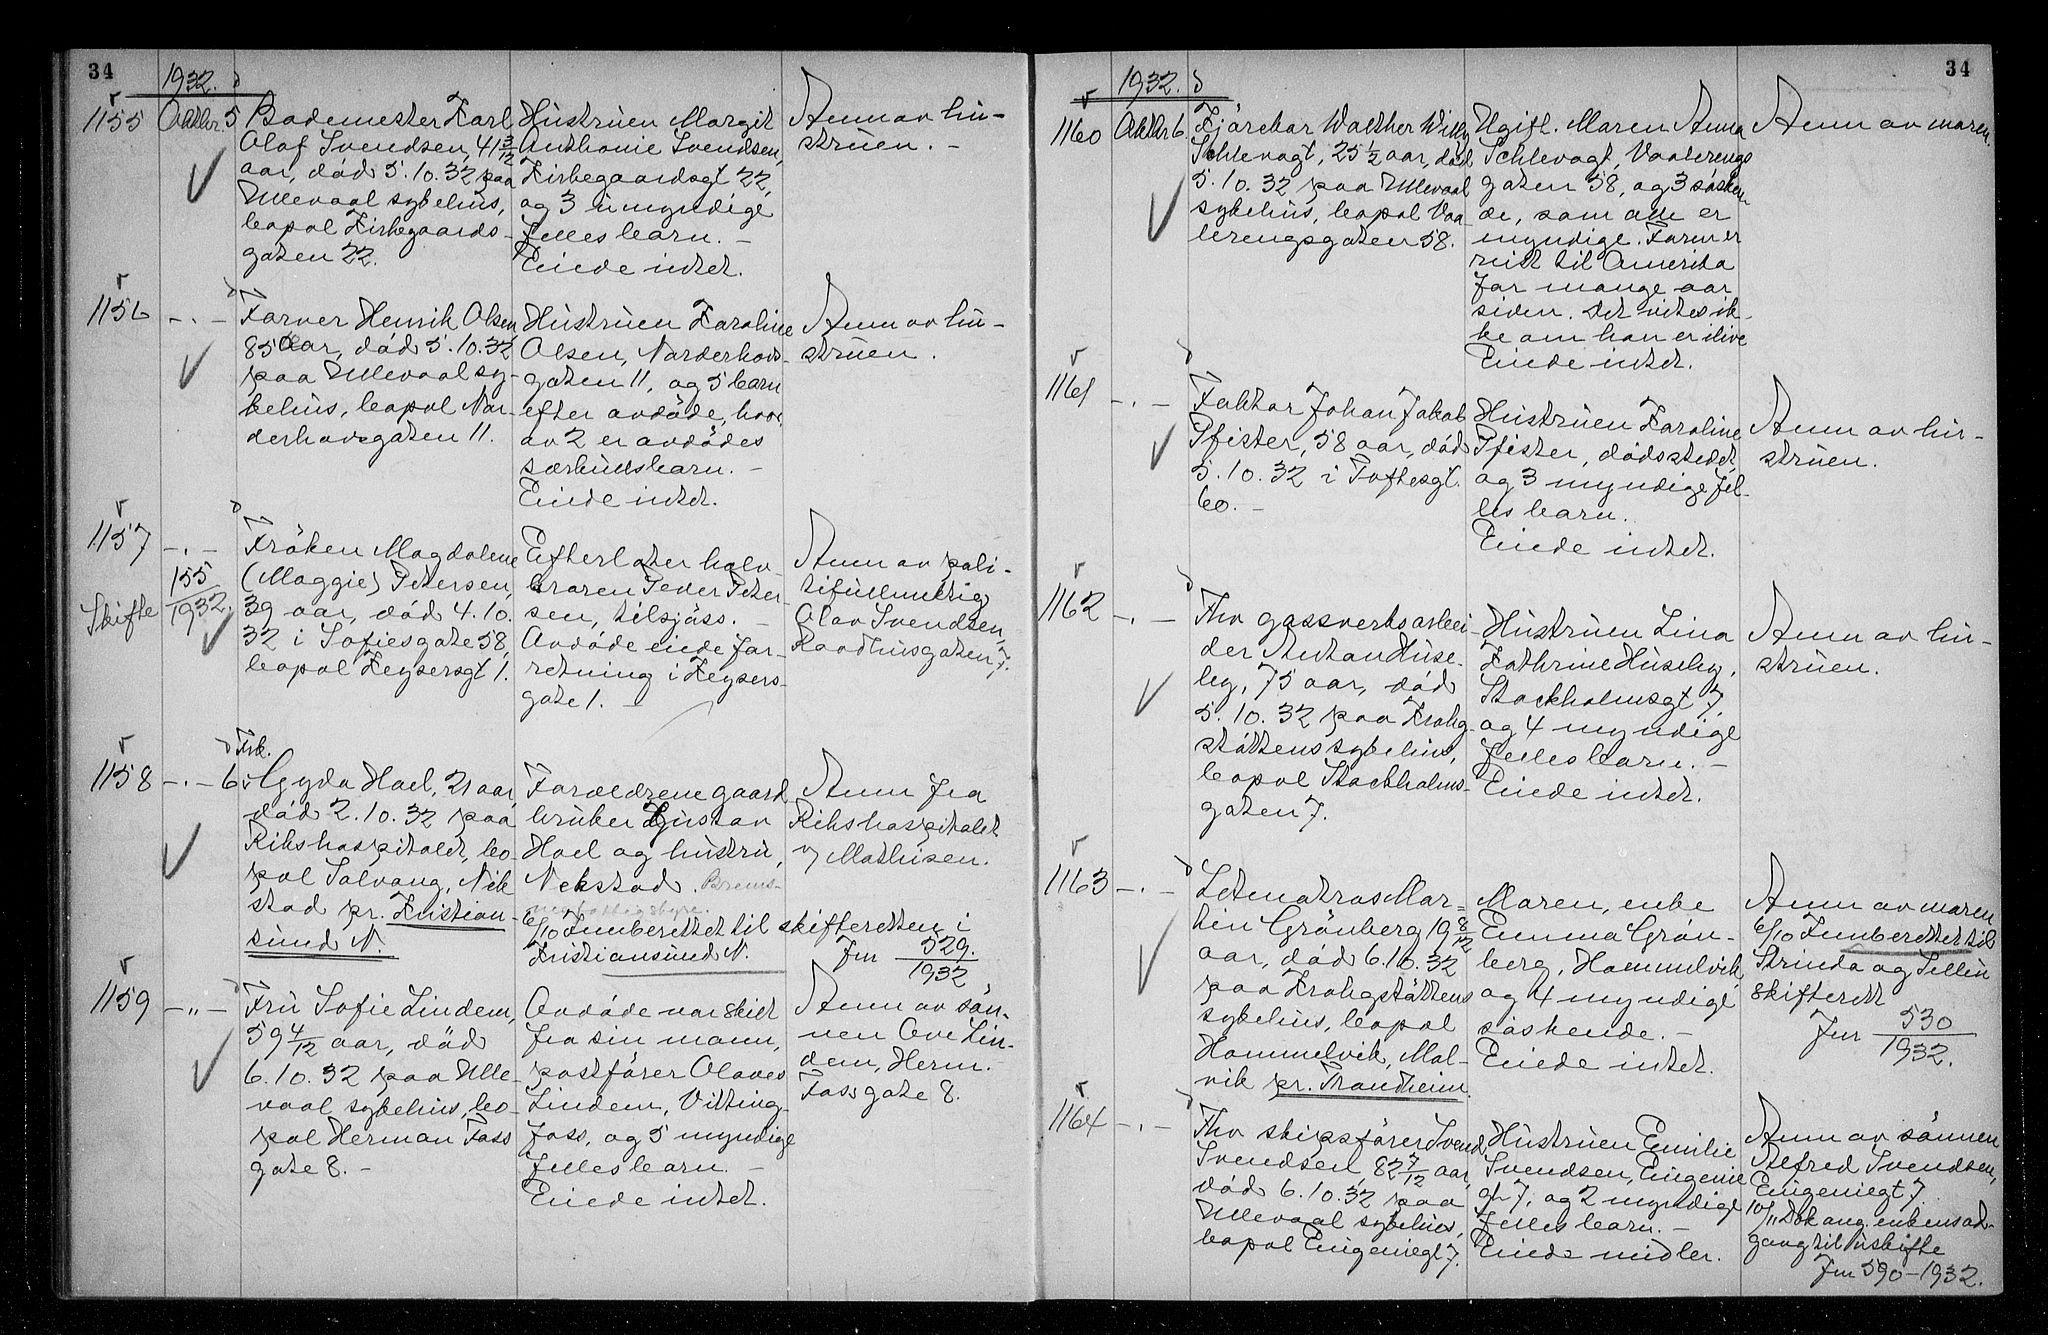 34
1932.
1155
Oktbr. 5
Bademester Karl
Olaf Svendsen, 41 3/12
aar, död 5.10.32 paa
Ullevaal sykehus,
bopæl Kirkegaards-
gaten 22.
Hustruen Margit
Anthonie Svendsen,
Kirkegaardsgt 22,
og 3 umyndige
felles barn. -
Eiede intet.
Anm av hu-
struen. -
1156
- . -
Farver Henrik Olsen
85 aar, död 5.10.32
paa Ullevaal sy-
kehus, bopæl Nor-
derhovsgaten 11.
Hustruen Karoline
Olsen, Norderhovs-
gaten 11, og 5 barn
efter avdöde, hvor-
av 2 er avdödes
særkullsbarn. -
Eiede intet.
Anm av hu-
struen.
1157
- . -
Skifte 155/1932
Fröken Magdalene
(Maggie) Petersen,
39 aar, död 4.10.
32 i Sofiesgate 58,
bopæl Keysersgt 1.
Efterlater halv-
broren Peder Peter-
sen, tilsjöss. -
Avdöde eiede for-
retning i Keysers-
gate 1. -
Anm av poli-
tifullmektig
Olav Svendsen,
Raadhusgaten 7.
1158
- . - 6
Frk.
Gyda Hoel, 21 aar
död 2.10.32 paa
Rikshospitalet, bo-
pæl Solvang, Nek
stad pr. Kristian-
sund N.
Foreldrene gaard
bruker Gustav
Hoel og hustru,
Nekstad. Brems-
6/10 Innberettet til skifteretten i
Kristiansund N.
Jnr 529./1932
Anm fra
Rikshospitalet
v/ Mathisen.
1159
- " -
Fru Sofie Lindem,
59 4/12 aar, död
6.10.32 paa Ulle-
vaal sykehus, bo-
pæl Herman Foss
gate 8. -
Avdöde var skilt
fra sin mann,
postförer Olaves
Lindem, Vitting-
foss, og 5 myndige
felles barn. -
Eiede intet.
Anm av sön-
nen Ove Lin-
dem, Herm.
Foss gate 8.
34
1932.
1160
Oktbr 6.
Kjörekar Walther Willy
Schlevogt, 25 1/2 aar, död
5.10.32 paa Ullevaal
sykehus, bopæl Vaa-
lerengsgaten 58.
Ugift. Moren Anna
Schlevogt, Vaalerengs
gaten 58, og 3 sösken
de, som alle er
myndige. Faren er
reist til Amerika
for mange aar
siden. Det vites ik-
ke om han er ilive
Eiede intet.
Anm av moren.
1161
- . -
Faktor Johan Jakob
Pfister, 58 aar, död
5.10.32 i Toftesgt.
60. -
Hustruen Karoline
Pfister, dödsstedet,
og 3 myndige fel-
les barn.
Eiede intet.
Anm av hu-
struen.
1162
- . -
Fhv gassverksarbei-
der Anton Huse-
by, 75 aar, död
5.10.32 paa Krohg-
stöttens sykehus,
bopæl Stockholms-
gaten 7.
Hustruen Lina
Kathrine Huseby,
Stockholmsgt 7,
og 4 myndige
felles barn. -
Eiede intet.
Anm av hu-
struen.
1163
- . -
Letmatros Mar-
tin Grönberg 19 8/12
aar, död 6.10.32
paa Krohgstöttens
sykehus, bopæl
Hommelvik, Mal-
vik pr. Trondheim.
Moren, enke
Emma Grön-
berg, Hommelvik,
og 4 myndige
söskende. -
Eiede intet.
Anm av moren
6/10 Innberettet til
Strinda og Selbu
skifterett
Jnr 530/1932.
1164
- . -
Fhv skipsförer Svend
Svendsen, 82 7/12 aar,
död 6.10.32 paa
Ullevaal sykehus,
bopæl Eugeniegt 7.
Hustruen Emilie
Svendsen, Eugenie
gt 7, og 2 myndige
felles barn. -
Eiede midler.
Anm av sönnen
Alfred Svendsen,
Eugeniegt 7.
10/11 Dok ang. enkens ad-
gang til uskifte
Jnr 590-1932.